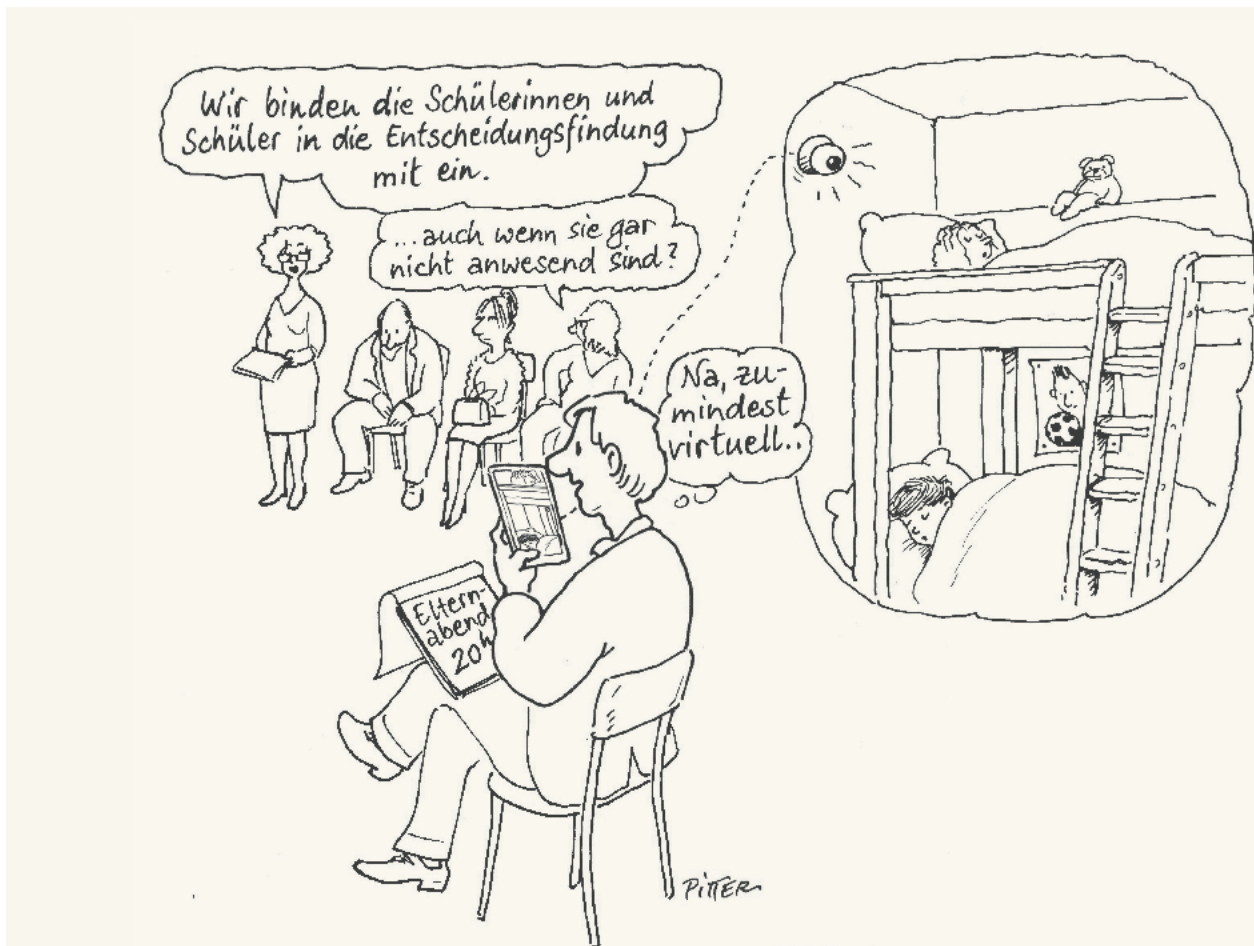 Wir binden die Schülerinnen und
Schüler in die Entscheidungsfindung
mit ein.
...auch wenn sie gar
nicht anwesend sind?
Na, zu-
mindest
virtuell..
Eltern-
abend
20h
PiTTER